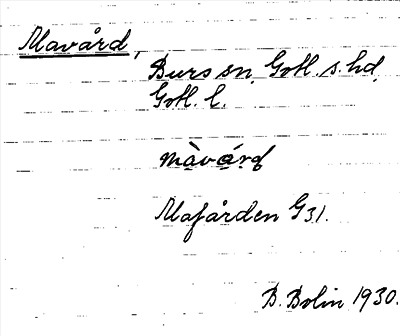 Mavård,
Burs sn, Gotl. s. hd,
Gotl. l.
màvárd
Mafården G 31.
B. Bolin 1930.